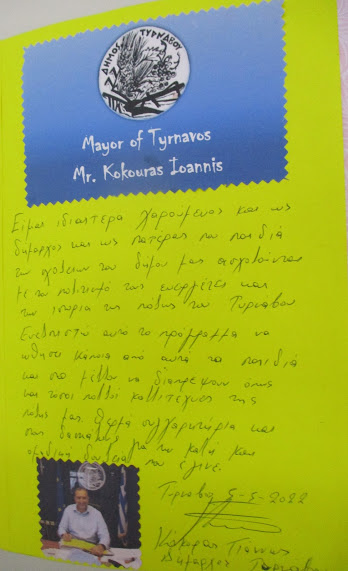 ΔΗΜΟΣ ΤΥΡΝΑΒΟΥ
Mayor of Tyrnavos
Mr. Kokouras Ioannis
Είμαι ιδιαίτερα χαρούμενος και ως
δήμαρχος και ως πατέρας που παιδιά
των σχολείων του δήμου μας ασχολούνται
με τον πολιτισμό τους ευεργέτες και
την ιστορία της πόλης του Τυρνάβου
αυτό το πρόγραμμα να
ωθήσει κάποια από αυτά τα παιδιά
και στο μέλλον να διαπρέψουν όπως
και τόσοι πολλοί καλλιτέχνες της
πόλης μας. Θερμά συγχαρητήρια και
στους δασκάλους για την καλή και
ομαδική δουλειά που έγινε.
Τύρναβος 5-5-2022
Κόκουρας Γιάννης
Δήμαρχος Τυρνάβου